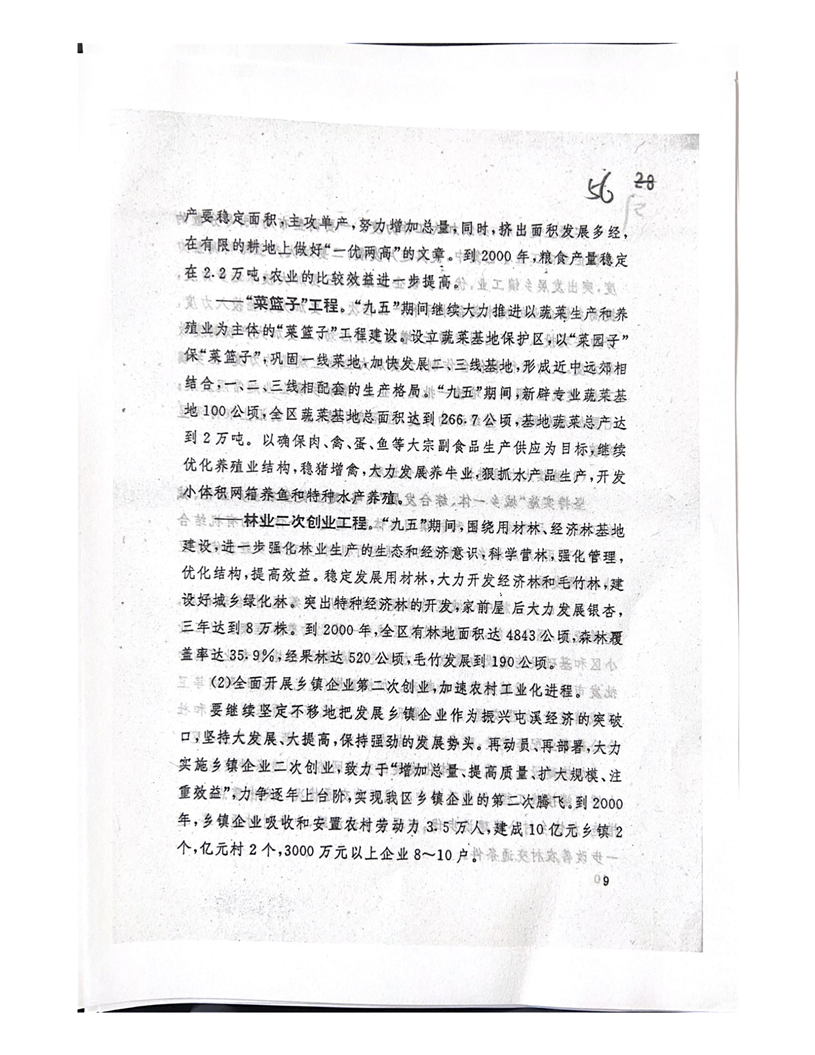 56 28
产要稳定面积,主攻单产,努力增加总量,同时,挤出面积发展多经,
在有限的耕地上做好“一优两高”的文章。到2000年,粮食产量稳定
在2.2万吨,农业的比较效益进一步提高。
——“菜篮子”工程。“九五”期间继续大力推进以蔬菜生产和养
殖业为主体的“菜篮子”工程建设。设立蔬菜基地保护区,以“菜园子”
保“菜篮子”,巩固一线菜地,加快发展二、三线基地,形成近中远郊相
结合,一、二、三线相配套的生产格局。“九五”期间,新辟专业蔬菜基
地100公顷,全区蔬菜基地总面积达到266.7公顷,基地蔬菜总产达
到2万吨。以确保肉、禽、蛋、鱼等大宗副食品生产供应为目标,继续
优化养殖业结构,稳猪增禽,大力发展养牛业,狠抓水产品生产,开发
小体积网箱养鱼和特种水产养殖。
——林业二次创业工程。“九五”期间,围绕用材林、经济林基地
建设,进一步强化林业生产的生态和经济意识,科学营林,强化管理,
优化结构,提高效益。稳定发展用材林,大力开发经济林和毛竹林,建
设好城乡绿化林。突出特种经济林的开发,家前屋后大力发展银杏,
三年达到8万株。到2000年,全区有林地面积达4843公顷,森林覆
盖率达35.9%,经果林达520公顷,毛竹发展到190公顷。
(2)全面开展乡镇企业第二次创业,加速农村工业化进程。
要继续坚定不移地把发展乡镇企业作为振兴屯溪经济的突破
口,坚持大发展、大提高,保持强劲的发展势头。再动员、再部署,大力
实施乡镇企业二次创业,致力于“增加总量、提高质量、扩大规模、注
重效益”,力争逐年上台阶,实现我区乡镇企业的第二次腾飞。到2000
年,乡镇企业吸收和安置农村劳动力3.5万人,建成10亿元乡镇2
个,亿元村2个,3000万元以上企业8～10户。
9